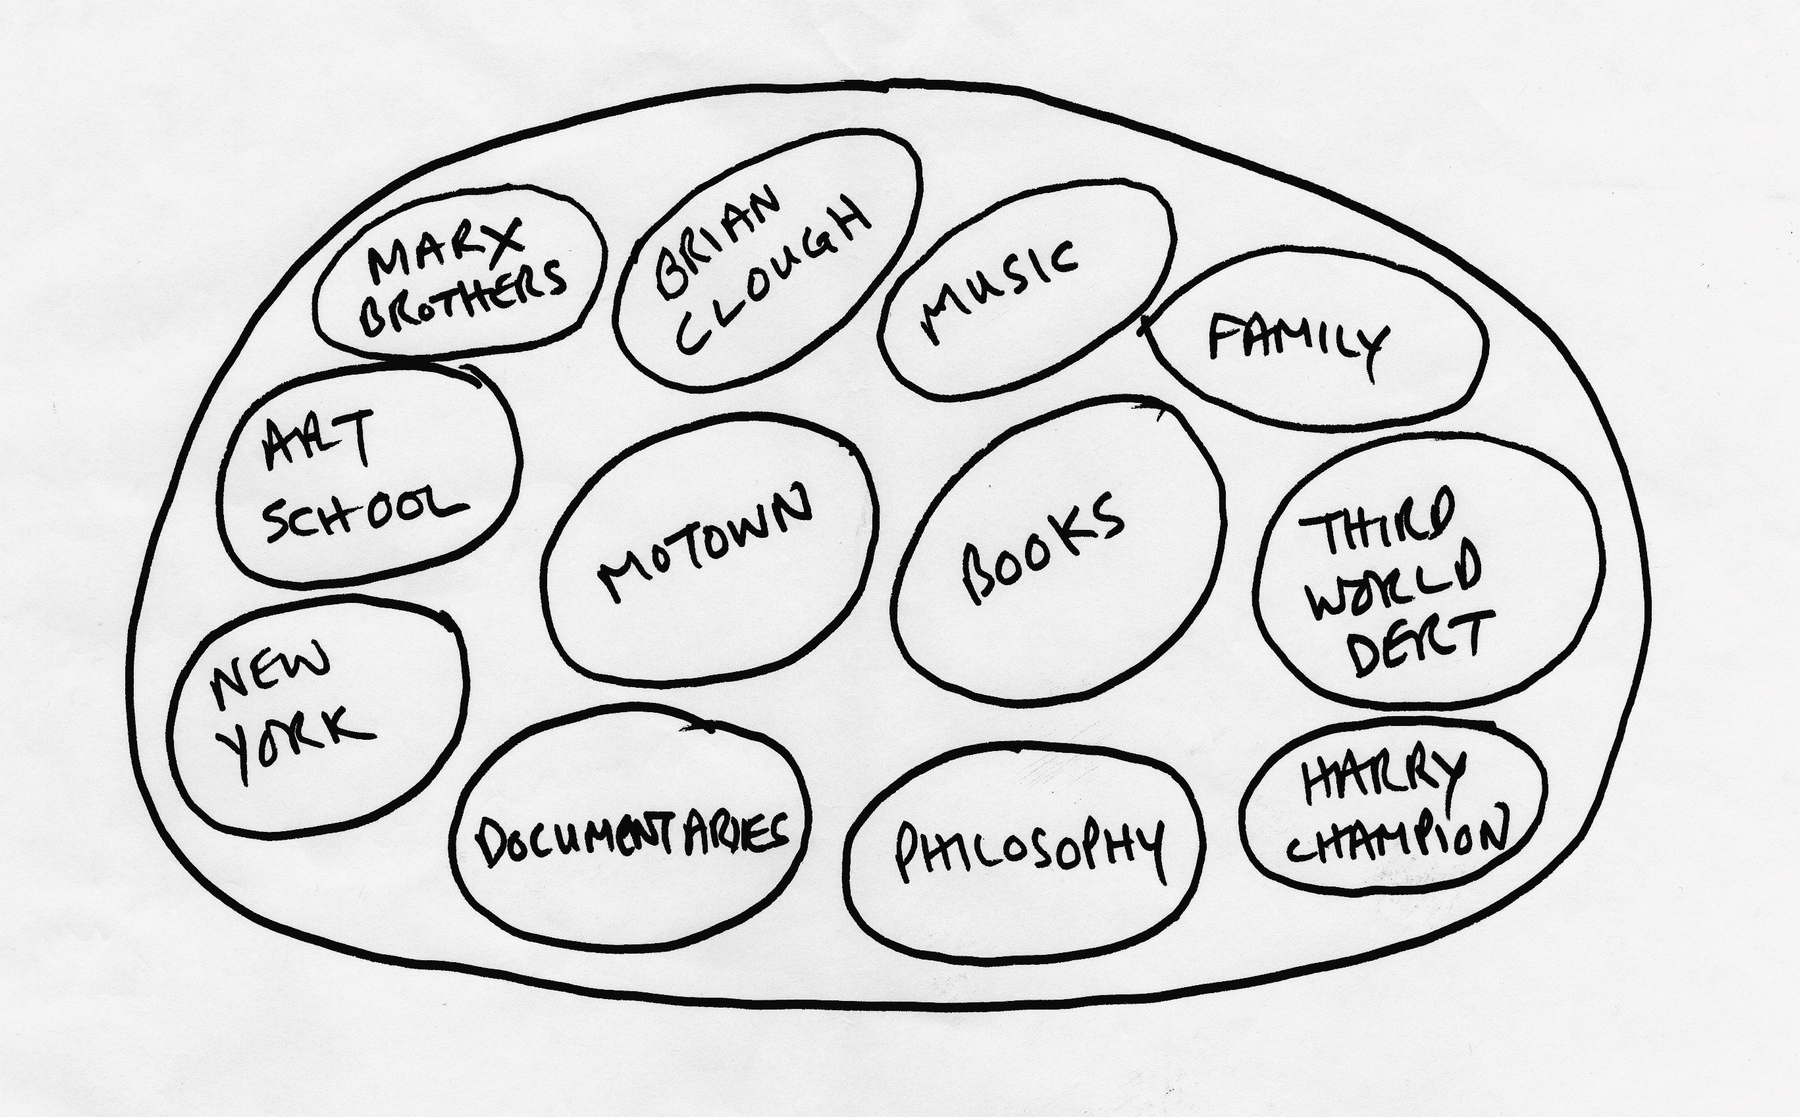 MARX
BROTHERS
BRIAN
CLOUGH
MUSIC
FAMILY
ART
SCHOOL
MOTOWN
BOOKS
THIRD
WORLD
DEBT
NEW
YORK
DOCUMENTARIES
PHILOSOPHY
HARRY
CHAMPION